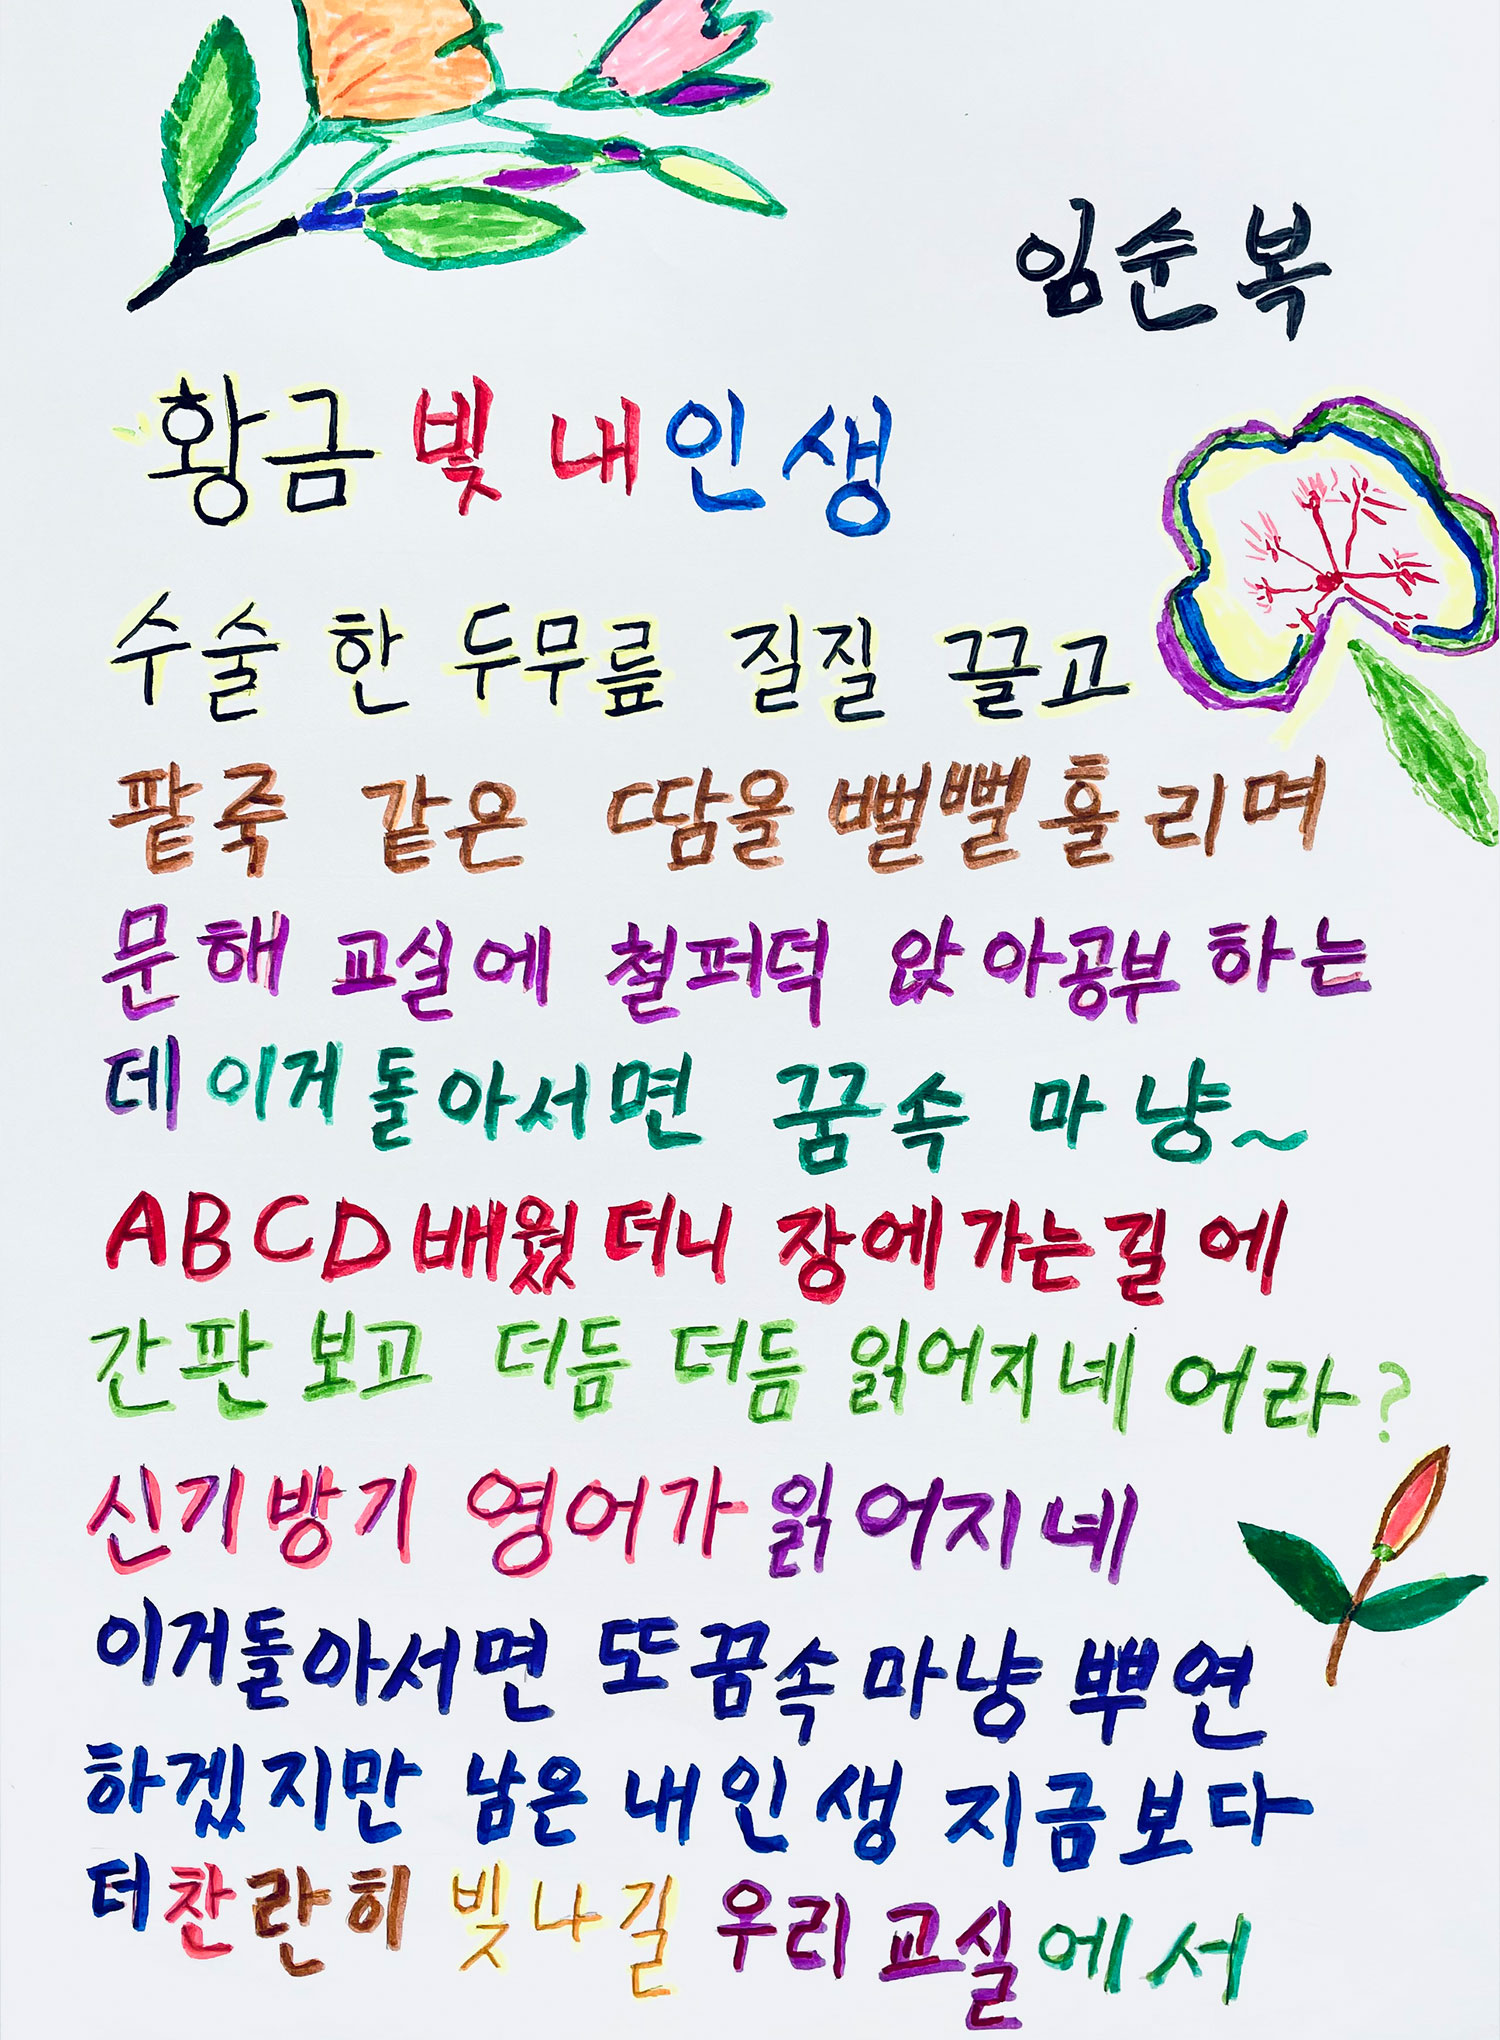 임순복
황금빛 내인생
수술 한 두무릎 질질 끌고
팥죽 같은 땀을 뻘뻘 흘리며
문해 교실에 철퍼덕 앉아공부하는
데 이거 돌아서면 꿈속 마냥~
ABCD 배웠더니 장에 가는길에
간판 보고 더듬 더듬 읽어지네 어라?
신기방기 영어가 읽어지네
이거돌아서면 또 꿈속마냥 뿌연
하겠지만 남은 내인생 지금보다
터 찬란히 빛나길 우리 교실에서